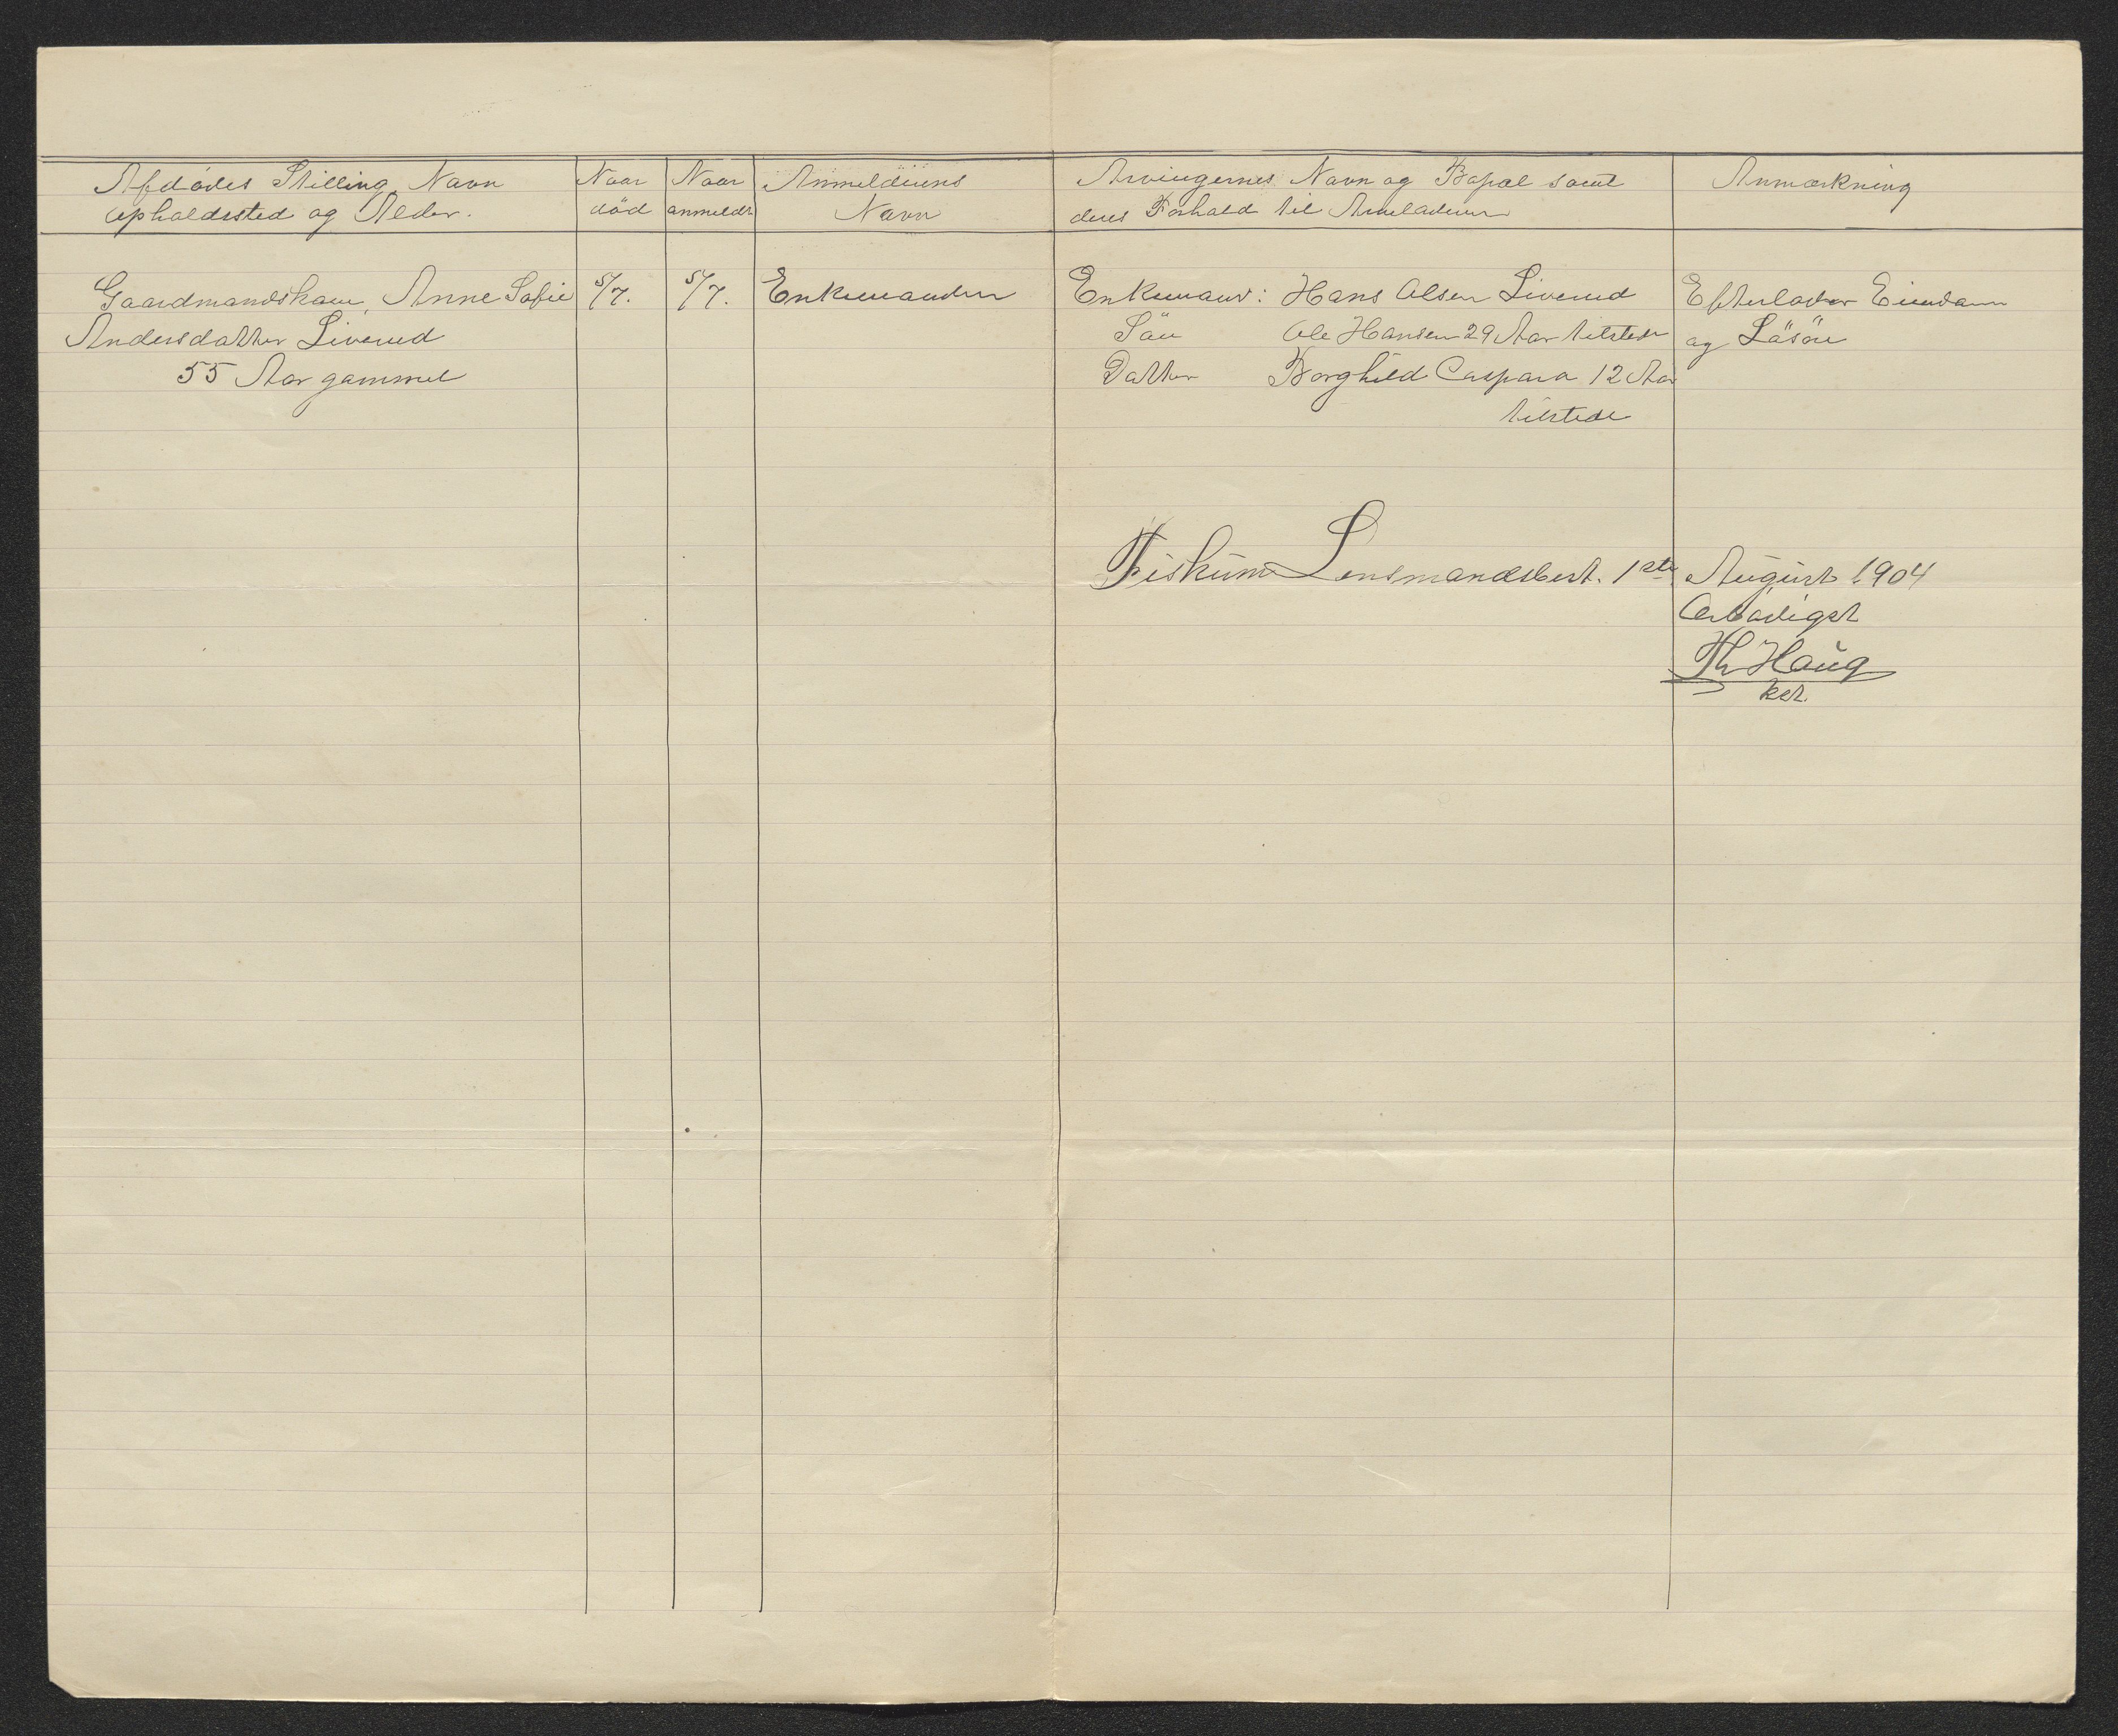 Afdødes Stilling, Navn
Opholdssted og Alder.
Naar
död
Naar
anmeldt
Anmelderens
Navn
Arvingernes Navn og Bopæl samt
deres Forhold til Arveladeren
Anmærkning
Gaardmandskone, Anne Sofie
Andersdatter Liverud
55 Aar gammel
5/7.
5/7.
Enkemanden
Enkemand: Hans Olsen Liverud
Sön Ole Hansen 29 Aar tilstede
Datter Borghild Caspara 12 Aar
tilstede
Efterlader Eiendom
og Lösöre
Fiskum Lensmandsbest. 1ste August 1904
Ærbödigst
Th Haug
kst.